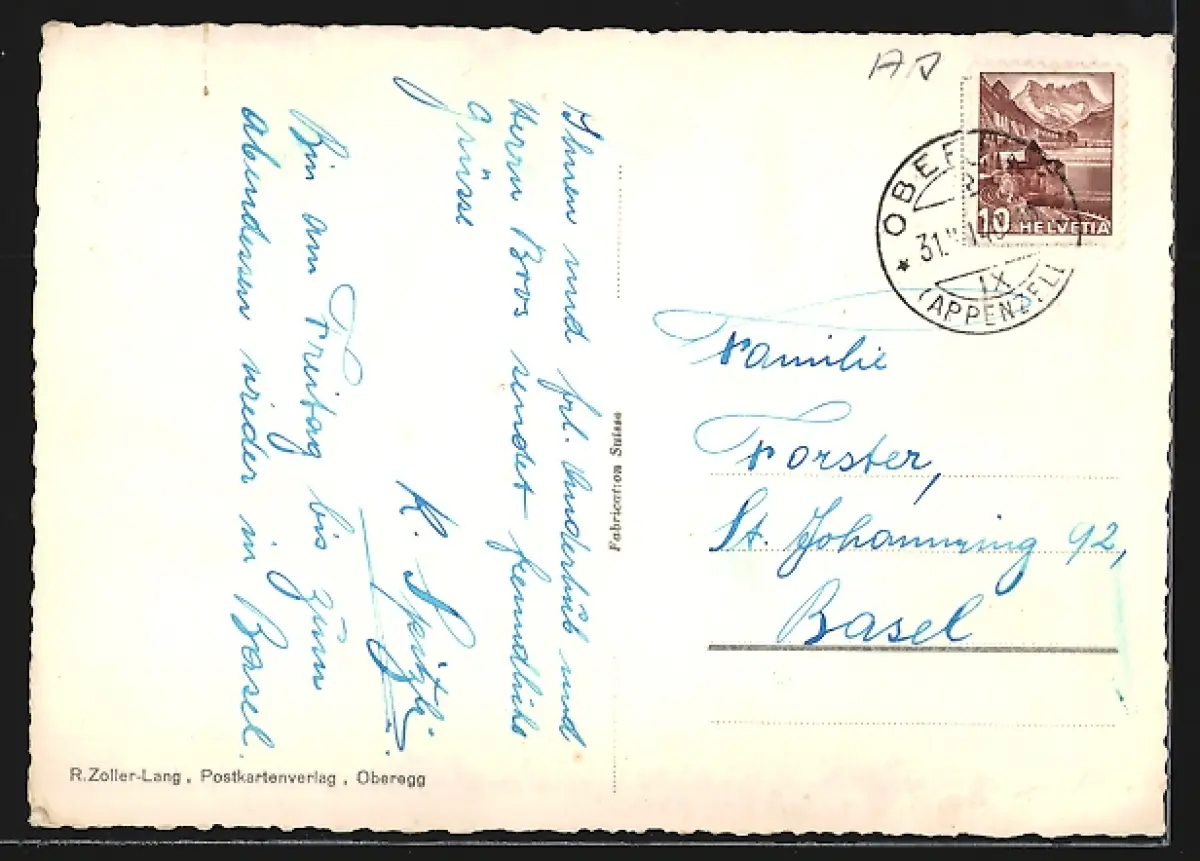 Ihnen und frl. Anderhub und
Herrn Bros sendet freundliche
Grüsse
K. Spitzli
Bin am Freitag bis zum
abendessen wieder in Basel.
Fabrication Suisse
R. Zoller-Lang, Postkartenverlag, Oberegg
10 HELVETIA
31.
IX
(APPENZELL
Familie
Forster,
St. Johannring 92,
Basel